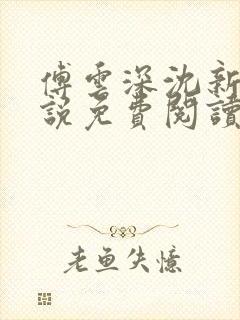 傅雲深沈新
説免費閱讀
老鱼失憶